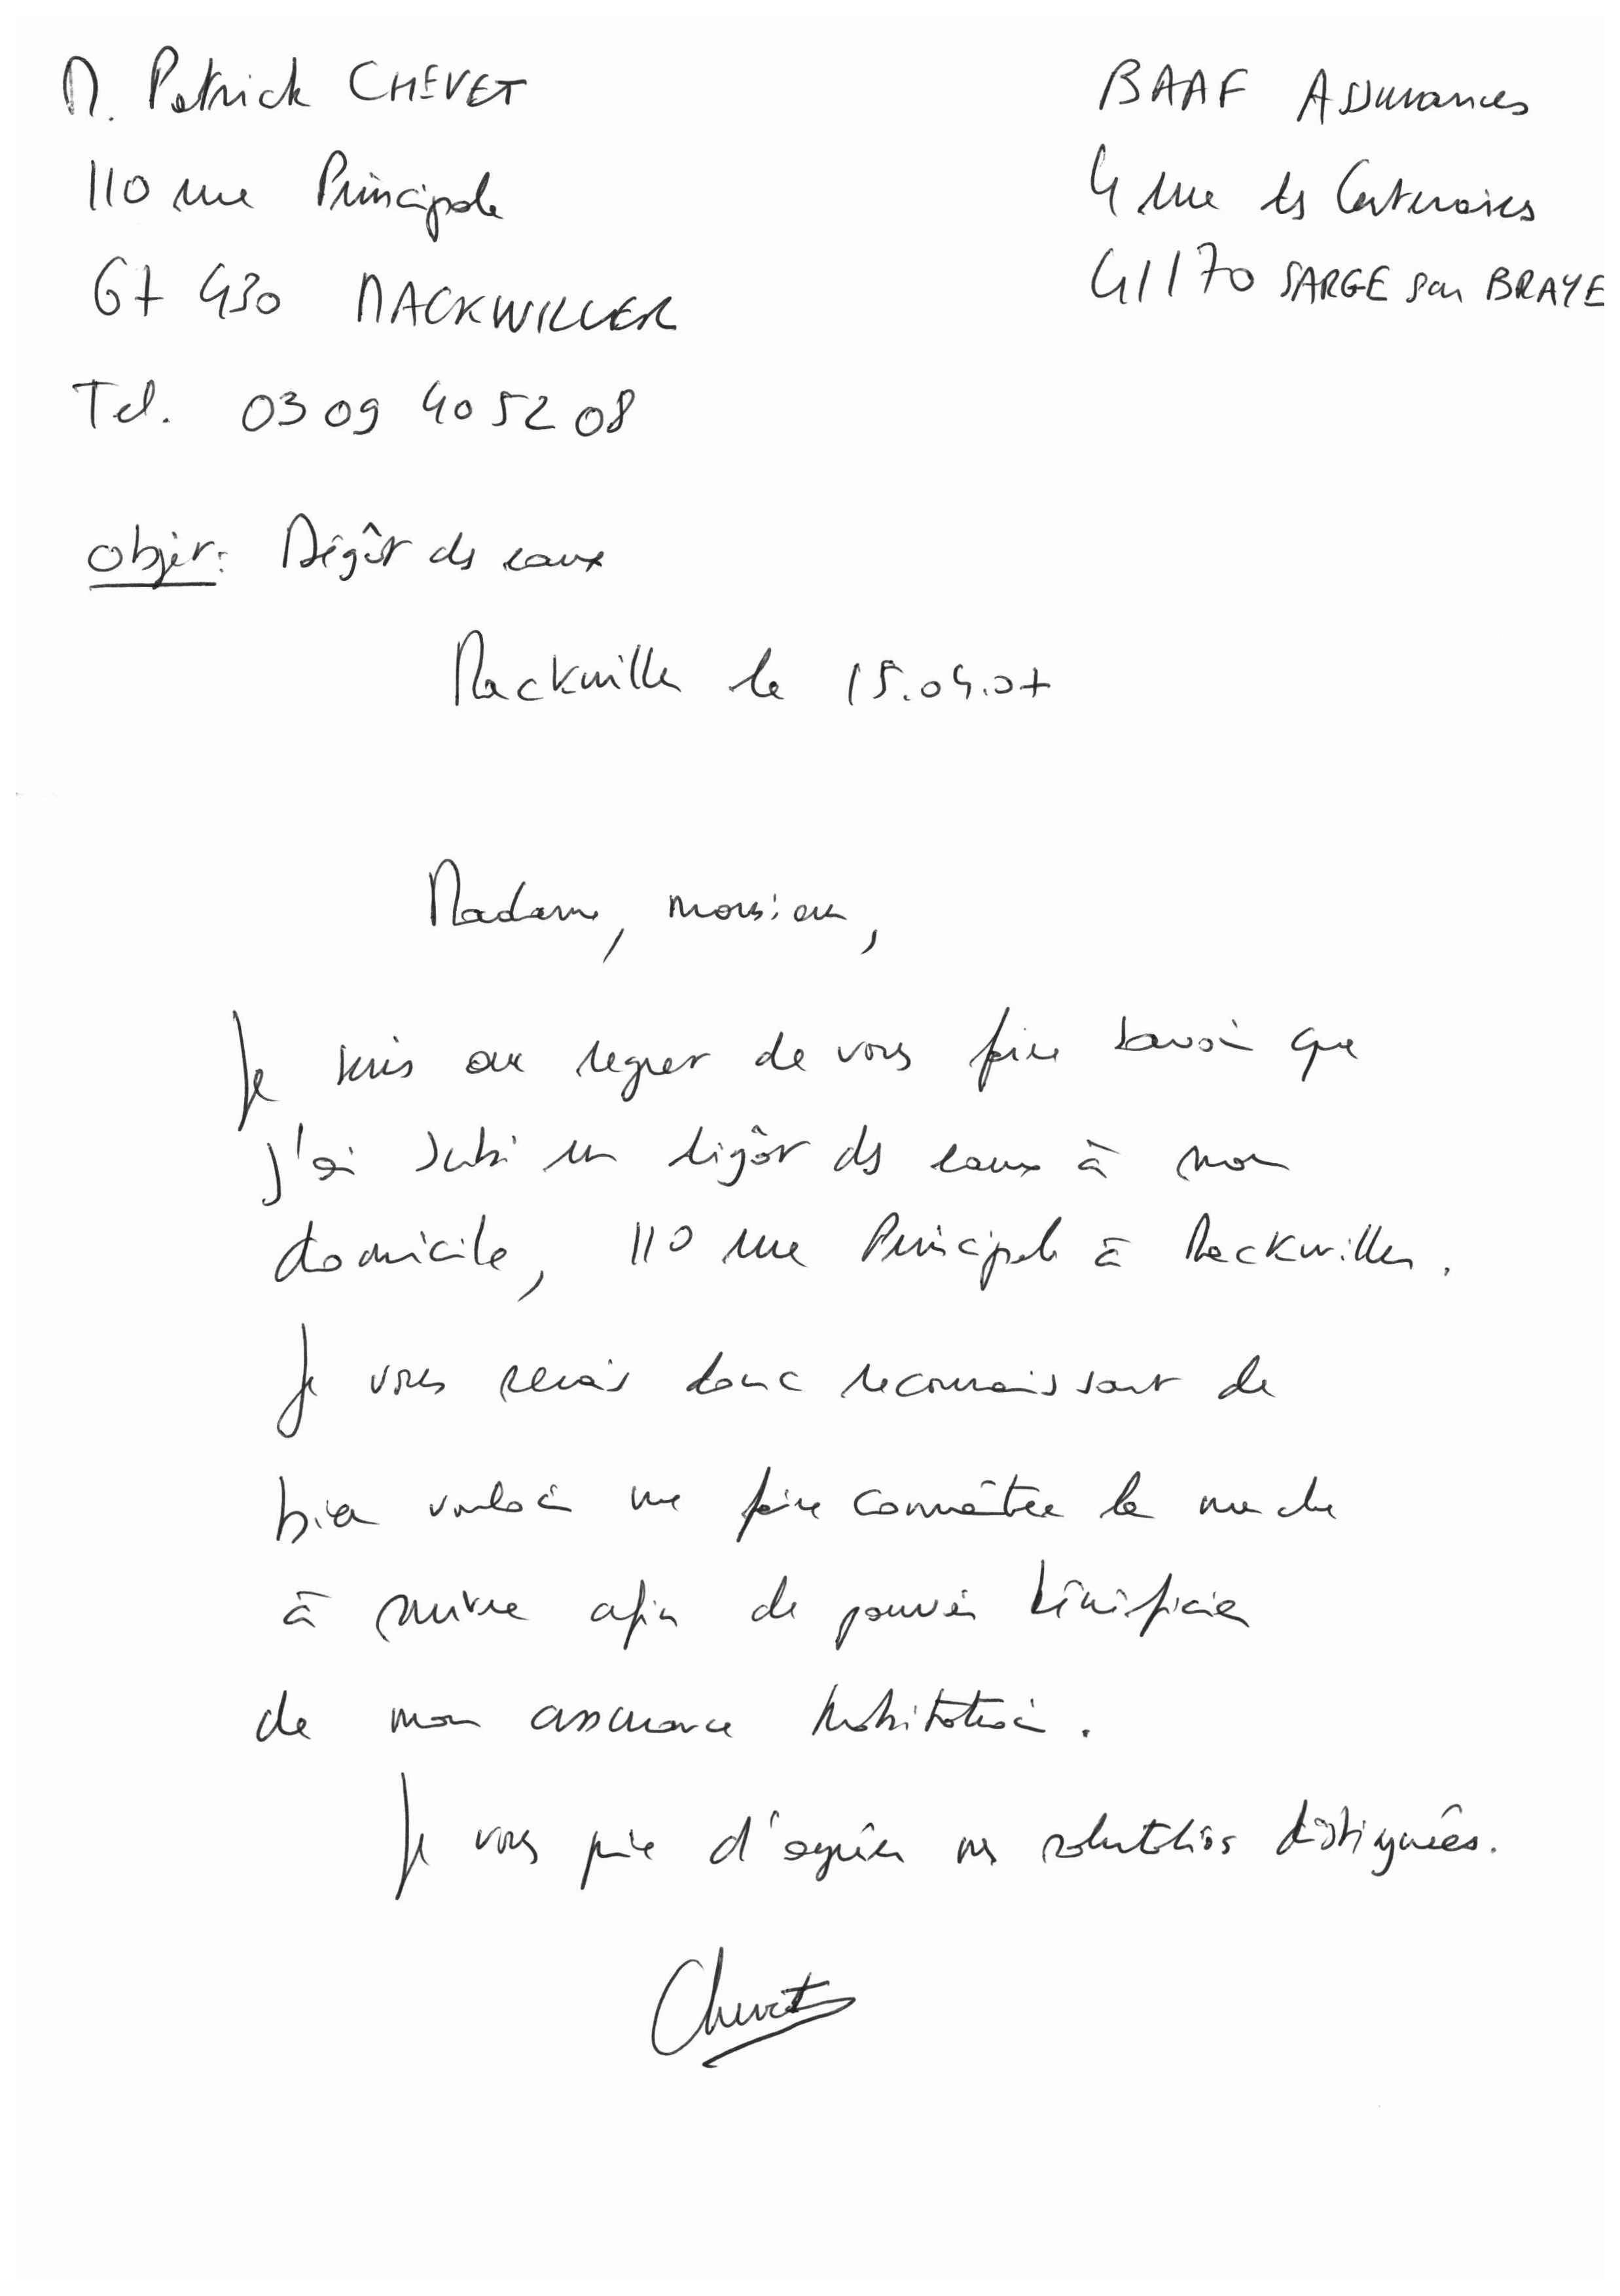 M. Patrick CHEVET
110 rue Principale
67 430 MACKWILLER
Tel. 03 09 40 52 08
BAAF Assurances
4 rue des
41170 SARGE sur BRAYE
Objet : Dégât des eaux
Mackwiller le 15.04.07
Madame, monsieur,
Je suis au regret de vous faire savoir que
j'ai subi un dégât des eaux à mon
domicile, 110 rue Principale à Mackwiller.
Je vous serais donc reconnaissant de
bien vouloir me faire connaître la marche
à suivre afin de pouvoir bénéficier
de mon assurance habitation.
Je vous prie d'agréer mes salutations distinguées.
Chevet